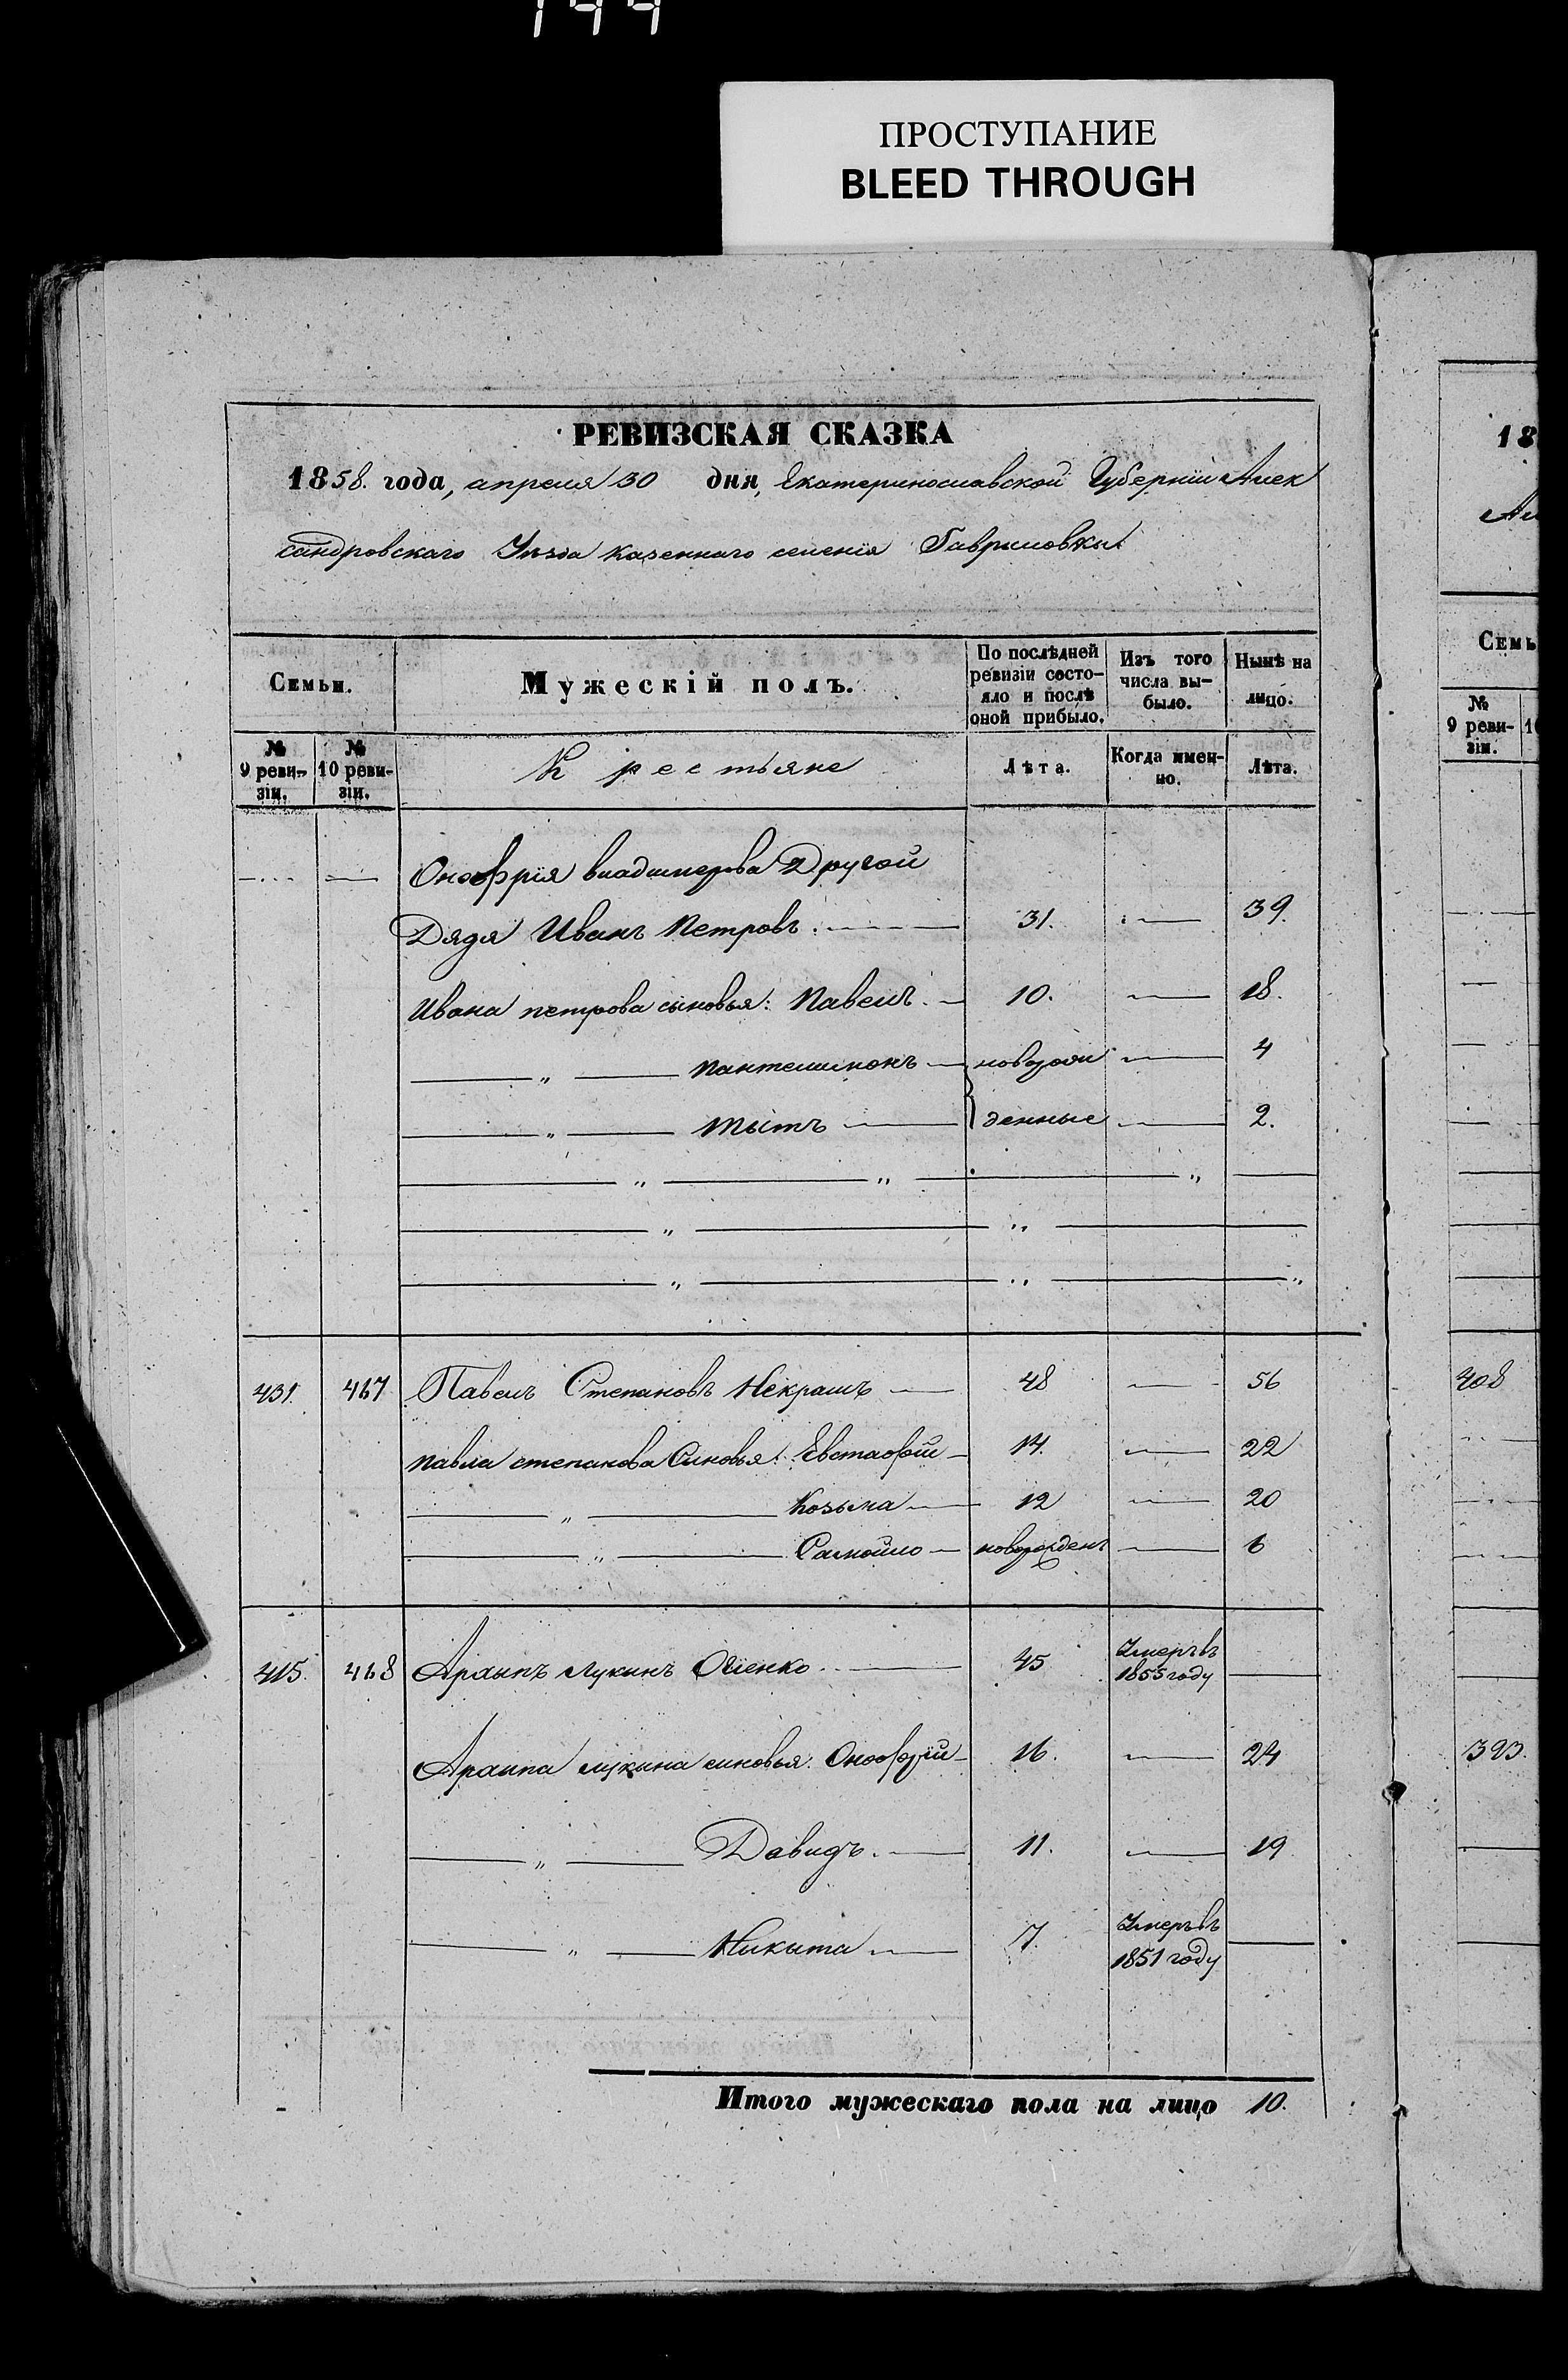 144
ПРОСТУПАНИЕ
BLEED THROUGH
РЕВИЗСКАЯ СКАЗКА
1858. года, апреля 30 дня, Екатеринославской Губерніи Алек
сандровскаго Уѣзда казеннаго селенія Гавриловки
Семьи.
Мужескій полъ.
По послѣдней ревизіи состо-яло и послѣ оной прибыло.
Изъ того числа вы-было.
Нынѣ на лицо.
№ 9 реви-зіи.
№ 10 реви-зіи.
Крестьяне
Лѣта.
Когда имен-но.
Лѣта.
Онофрія владимерова Другой
Дядя Иванъ Петровъ. 31. 39.
Ивана петрова сыновья: Павелъ. 10. 18.
„ Пантелимонъ новорож 4
„ Тытъ денные 2.
431. 467 Павелъ Степановъ Некрашъ 48 56
Павла степанова Синовья: Евстафій 14. 22
„ Козьма 12 20
„ Самойло новорожденъ 6
415. 468 Архипъ Лукинъ Огіенко 45 Умеръ въ 1855 году
Архипа лукина синовья: Онофрій 16. 24
„ Давидъ. 11. 19
„ Никыта 7. Умеръ въ 1851 году
Итого мужескаго пола на лицо 10.
18
Ал
Семь
№ 9 реви-зіи.
1
408
393.